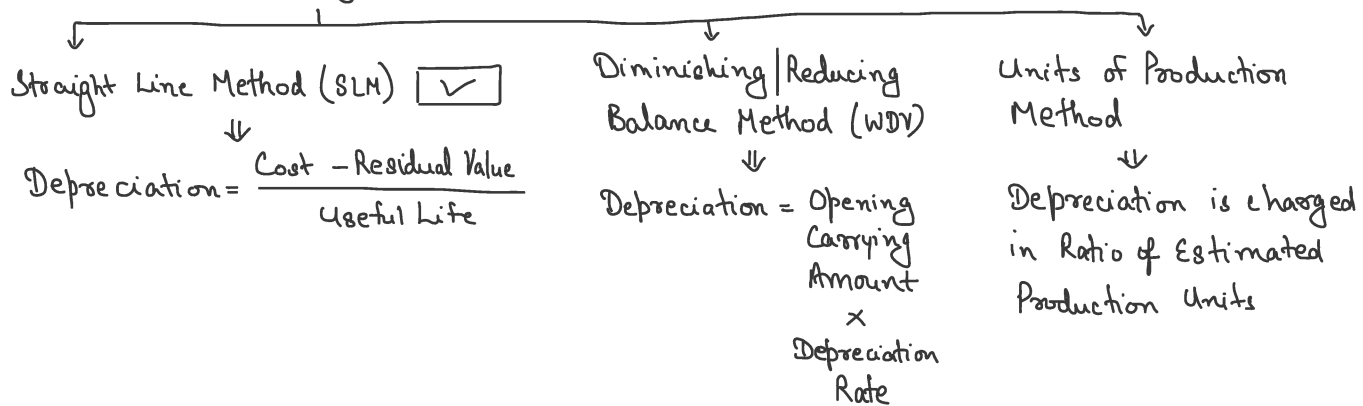 Straight Line Method (SLM) ✓
⇓
Depreciation = Cost - Residual Value
Useful Life
Diminishing|Reducing
Balance Method (WDV)
⇓
Depreciation = Opening
Carrying
Amount
×
Depreciation
Rate
Units of Production
Method
⇓
Depreciation is charged
in Ratio of Estimated
Production Units